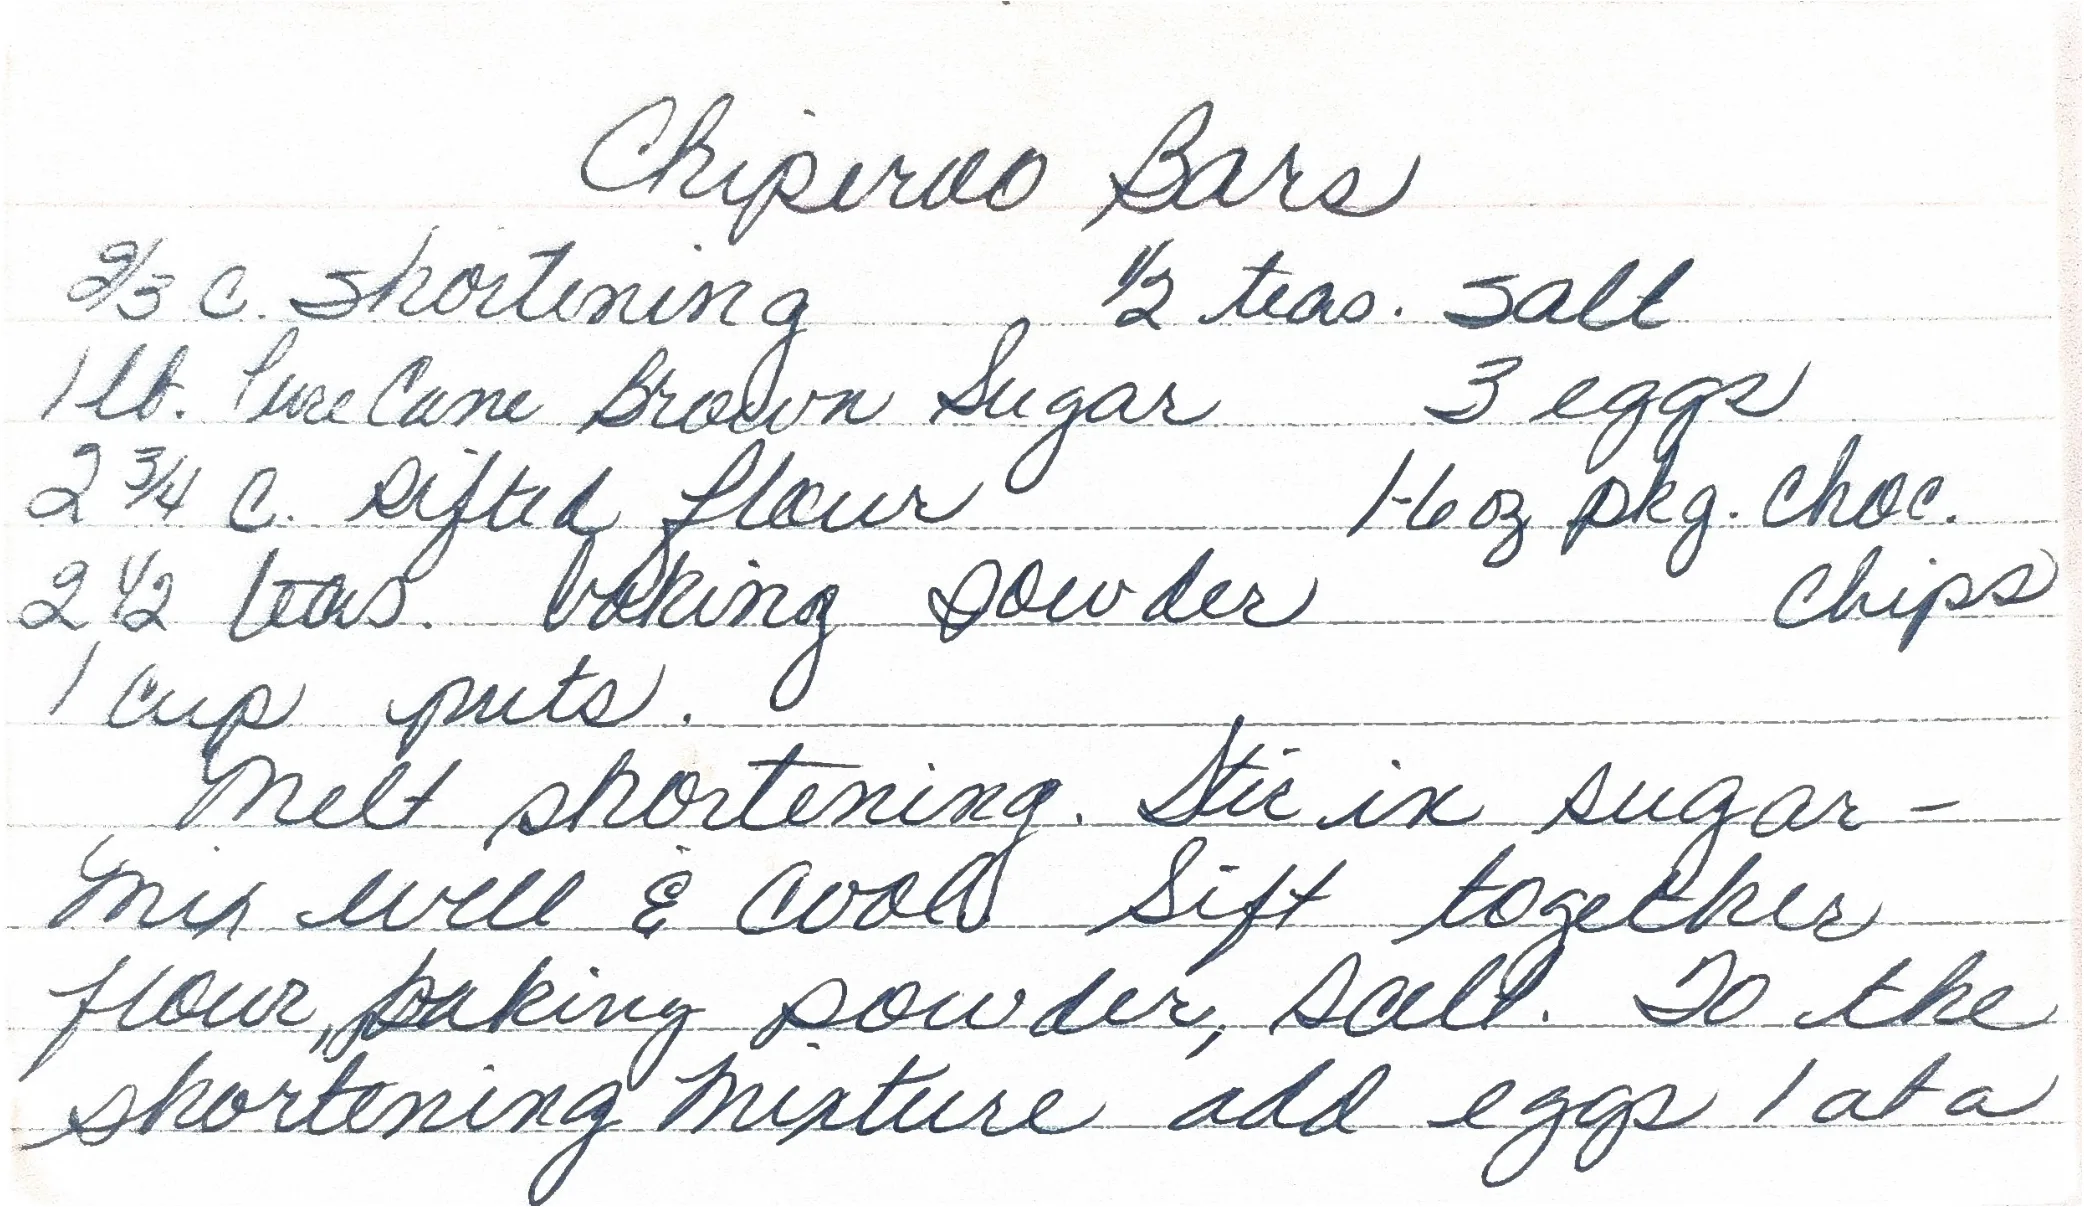 Chiperoo Bars
2/3 c. shortening 1/2 teas. salt
1 lb. Pure Cane Brown Sugar 3 eggs
2 3/4 c. sifted flour 1-6 oz pkg. choc.
2 1/2 teas. baking powder chips
1 cup nuts.
Melt shortening. Stir in sugar -
mix well & cool. Sift together
flour, baking powder, salt. To the
shortening mixture add eggs 1 at a